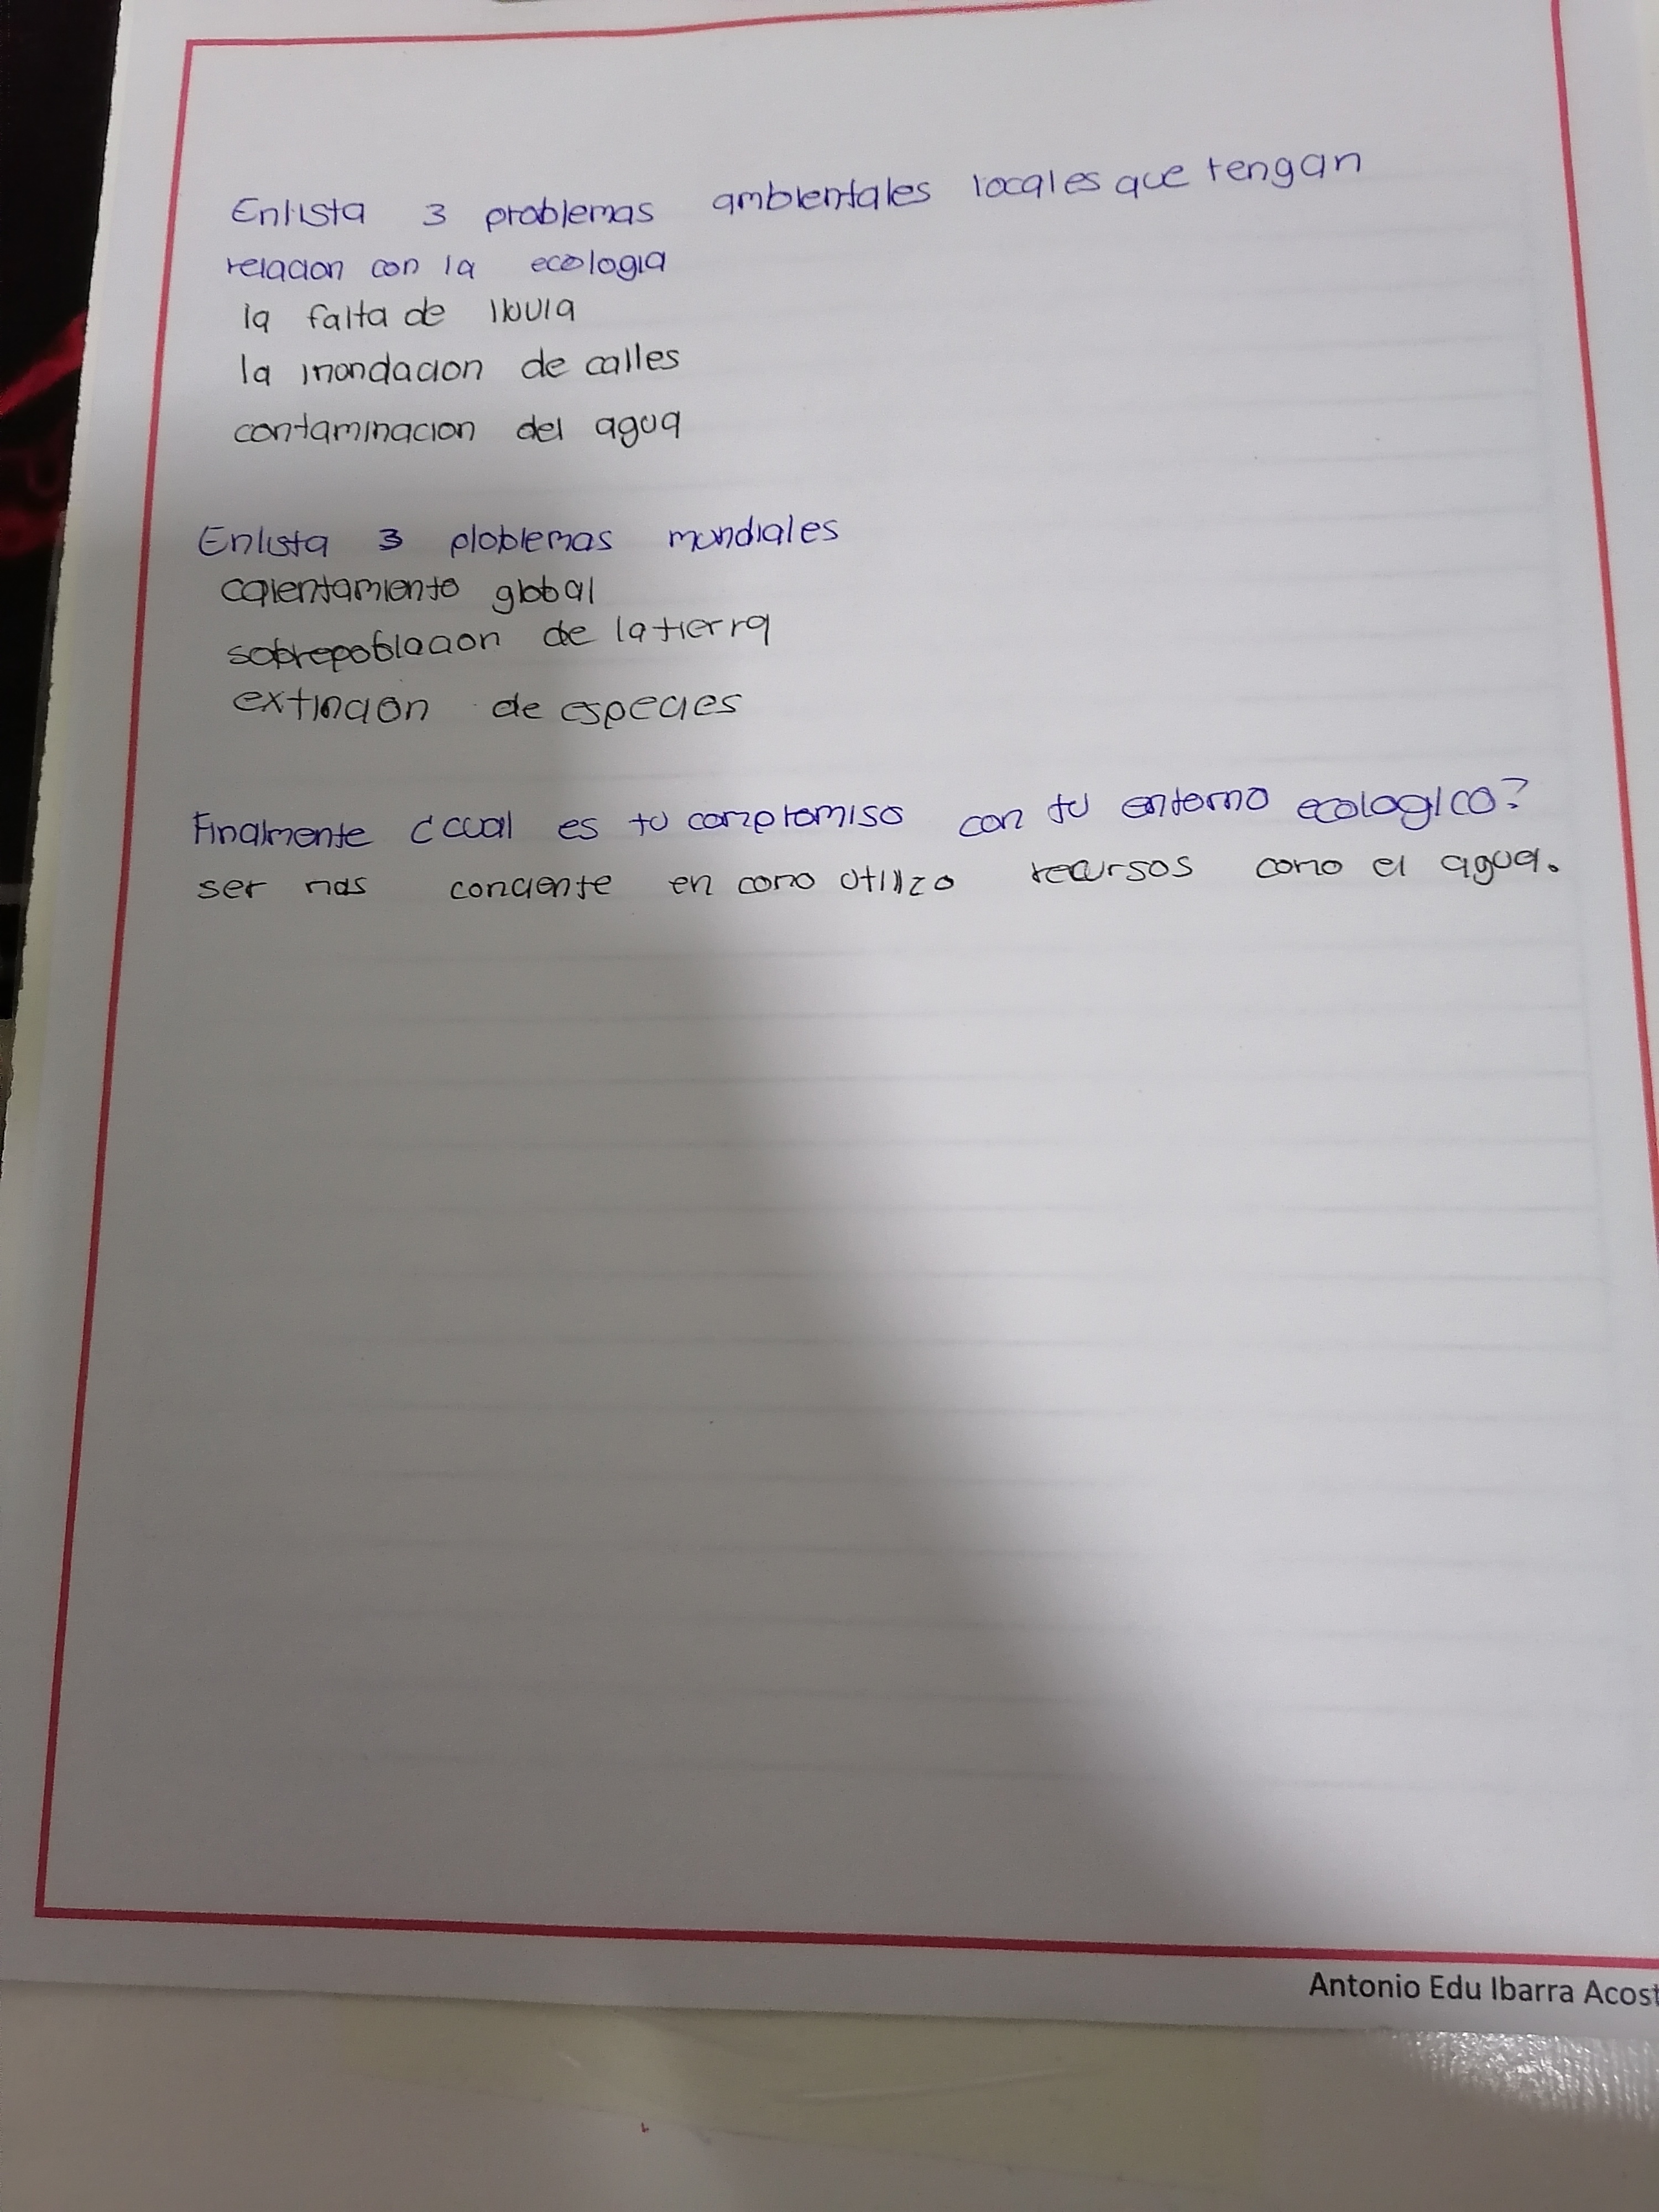 Enlista 3 problemas ambientales locales que tengan
relacion con la ecologia
la falta de lluvia
la inondacion de calles
contaminacion del agua
Enlista 3 ploblemas mundiales
calentamiento global
sobrepoblacion de la tierra
extincion de especies
Finalmente ¿cual es tu compromiso con tu entorno ecologico?
ser mas conciente en como utilizo recursos como el agua.
Antonio Edu Ibarra Acost